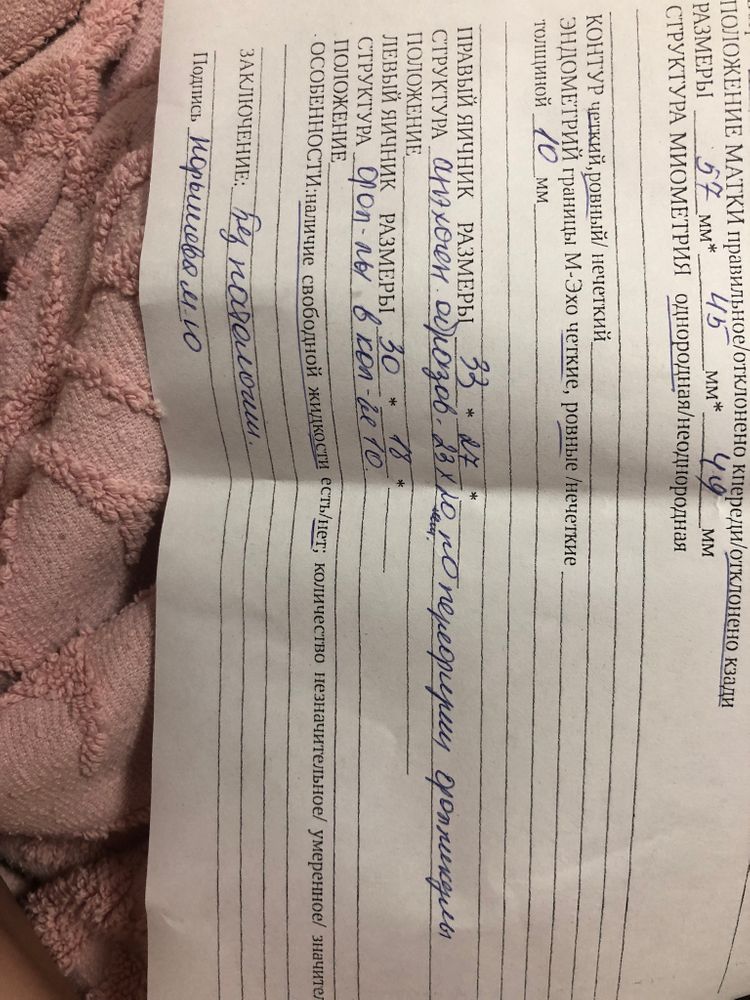 ПОЛОЖЕНИЕ МАТКИ правильное/отклонено кпереди/отклонено кзади
РАЗМЕРЫ 57 мм* 45 мм* 49 мм
СТРУКТУРА МИОМЕТРИЯ однородная/неоднородная
КОНТУР четкий,ровный/ нечеткий
ЭНДОМЕТРИЙ границы М-Эхо четкие, ровные /нечеткие
толщиной 10 мм
ПРАВЫЙ ЯИЧНИК РАЗМЕРЫ 33 * 27 *
СТРУКТУРА анэхоген. образов. 23х10 по периферии фолликулы
ПОЛОЖЕНИЕ
ЛЕВЫЙ ЯИЧНИК РАЗМЕРЫ 30 * 18 *
СТРУКТУРА фол-лы в кол-ве 10
ПОЛОЖЕНИЕ
ОСОБЕННОСТИ:наличие свободной жидкости есть/нет; количество незначительное/ умеренное/
ЗАКЛЮЧЕНИЕ: Без патологии.
Подпись